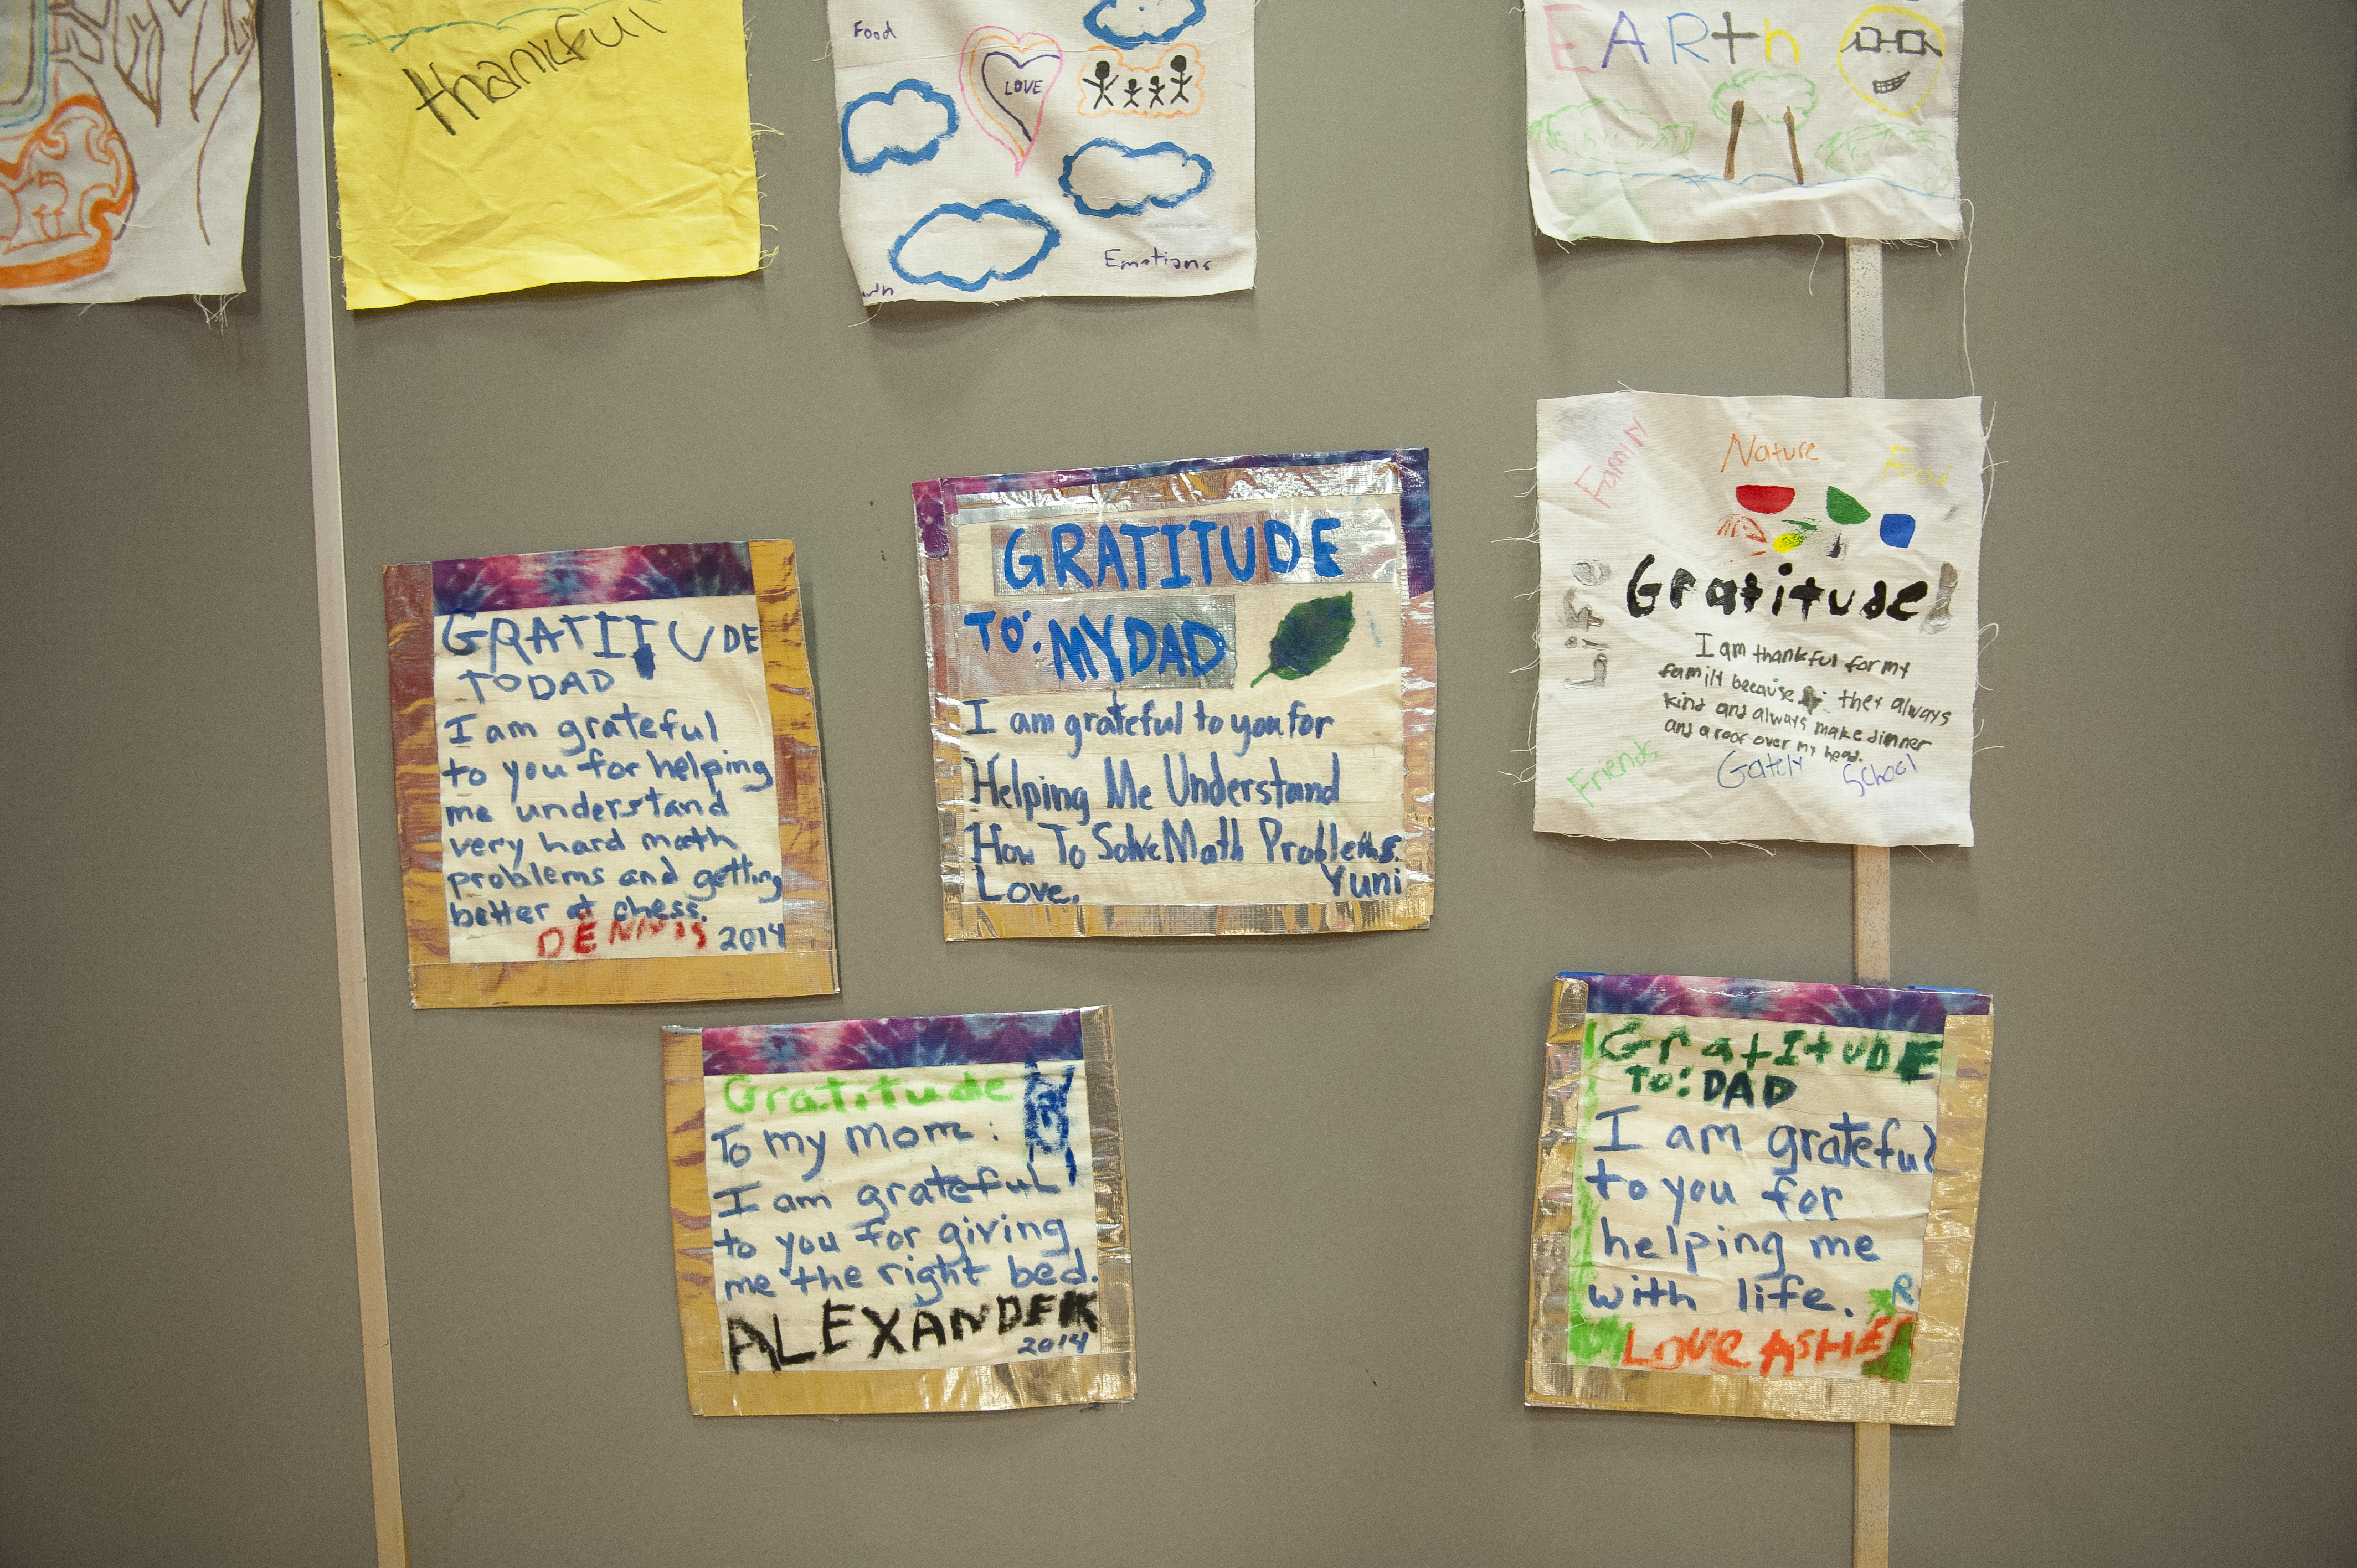 thankful
Food
LOVE
Emotions
EARth
GRATITUDE
TO DAD
I am grateful
to you for helping
me understand
very hard math
problems and getting
better at chess.
DENNIS 2014
GRATITUDE
TO: MY DAD
I am grateful to you for
Helping Me Understand
How To Solve Math Problems.
Love. Yuni
Family
Nature
Food
Life
Gratitude!
I am thankful for my
family because they always
kind and always make dinner
and a roof over my head.
Friends
Gately School
Gratitude
To my mom:
I am grateful
to you for giving
me the right bed.
ALEXANDER
2014
GratItUDE
TO: DAD
I am grateful
to you for
helping me
with life.
LOVE ASHER